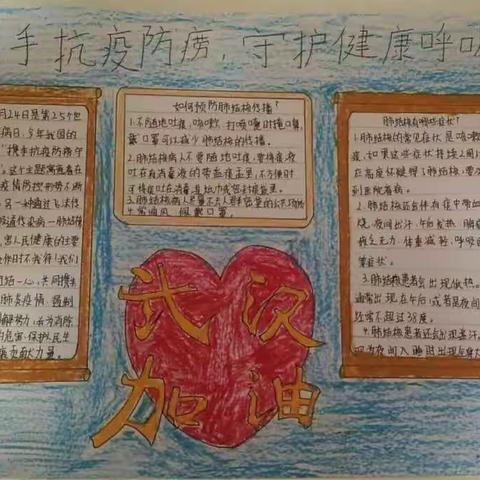 手抗疫防痨,守护健康呼吸
月24日是第25个世
病日,今年我国的
"携手抗疫防痨守
"。这个主题寓意着在
疫情防控形势不断
另一种通过飞沫传
呼吸道传染病一肺结核
害人民健康的主要
如何预防肺结核传播?
1.不随地吐痰,咳嗽、打喷嚏时掩口鼻,
戴口罩可以减少肺结核的传播。
2.肺结核病人不要随地吐痰,要将痰液
吐在有消毒液的带盖痰盂里,不方便时
可将痰吐在消毒湿纸巾或密封痰袋里。
3.肺结核病人尽量不去人群密集的公共场所
4.常通风,佩戴口罩。
肺结核有哪些症状?
1.肺结核的常见症状是咳嗽
痰,如果这些症状持续2周以
应高度怀疑得了肺结核,要
到医院看病。
2.肺结核还会伴有痰中带血
烧、夜间出汗、午后发热、胸
疲乏无力、体重减轻、呼吸
等症状。
3.肺结核患者会出现低热。
通常出现在午后,或者是夜间
经常不超过38度。
4.肺结核患者还会出现盗汗。
武汉
加油